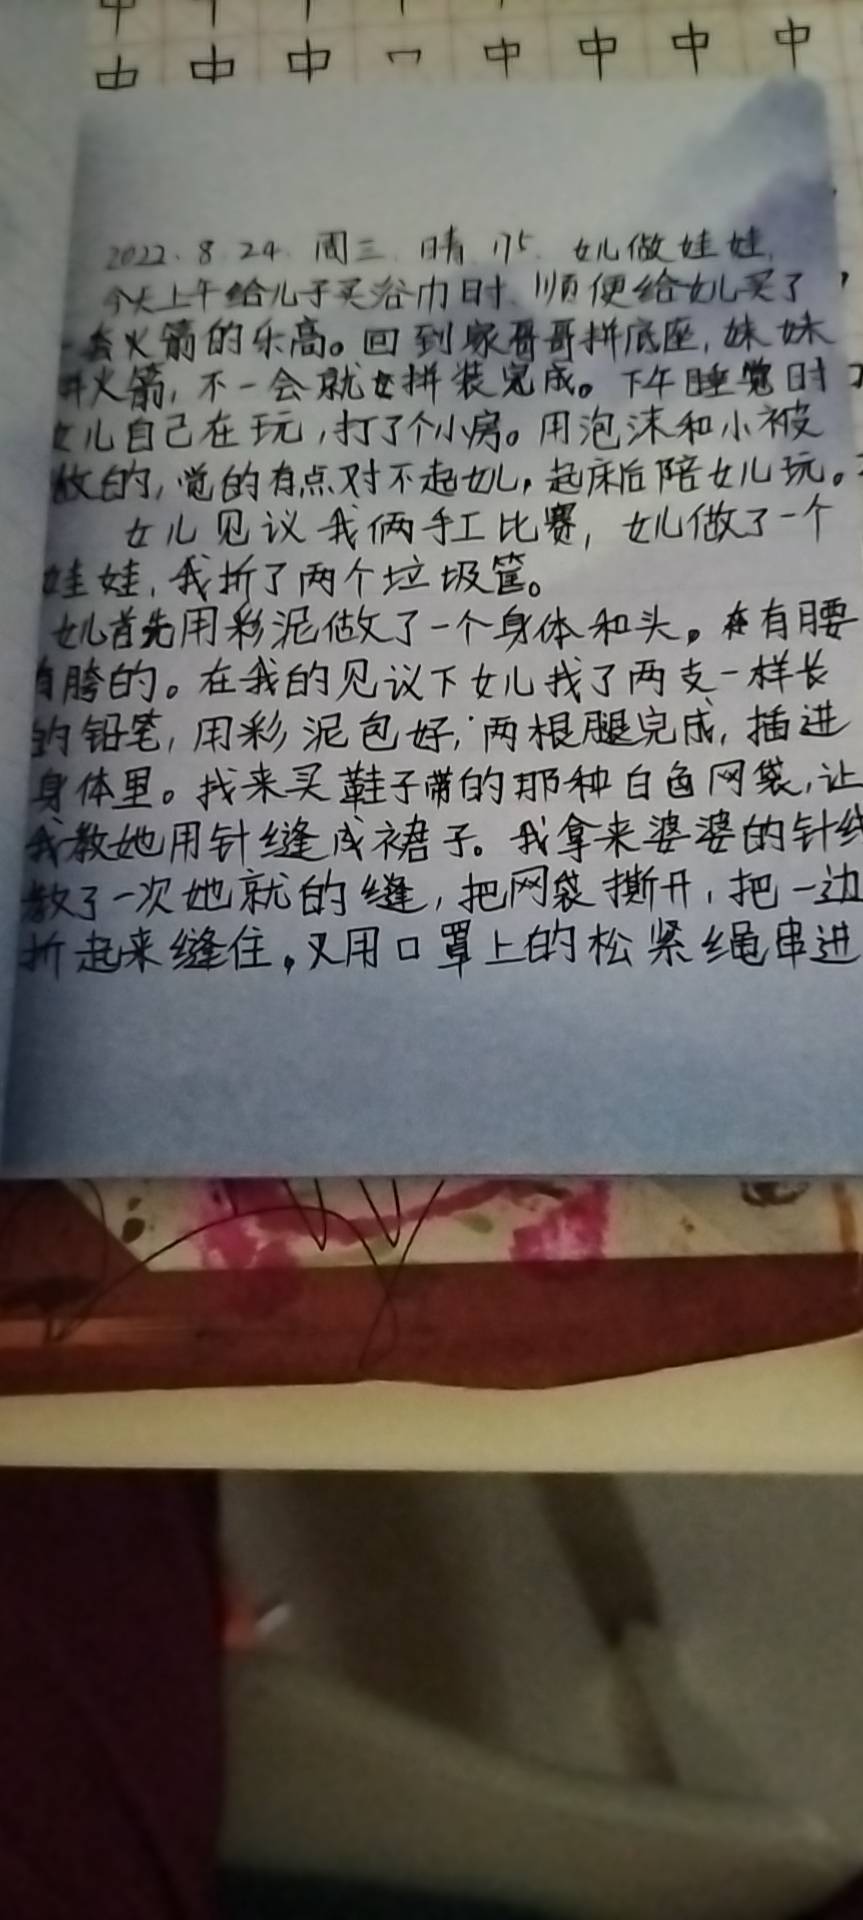 中 中 中 中 中 中 中
2022.8.24.周三.晴.175.女儿做娃娃.
今天上午给儿子买浴巾时、顺便给女儿买了
一套火箭的乐高。回到家哥哥拼底座,妹妹
拼火箭,不一会就拼装完成。下午睡觉时
女儿自己在玩,打了个小房。用泡沫和小被
做的,觉的有点对不起女儿,起床后陪女儿玩。
女儿见议我俩手工比赛,女儿做了一个
娃娃,我折了两个垃圾筐。
女儿首先用彩泥做了一个身体和头。有腰
有胯的。在我的见议下女儿找了两支一样长
的铅笔,用彩泥包好,两根腿完成,插进
身体里。找来买鞋子带的那种白色网袋,让
我教她用针缝成裙子。我拿来婆婆的针线
教了一次她就的缝,把网袋撕开,把一边
折起来缝住。又用口罩上的松紧绳串进